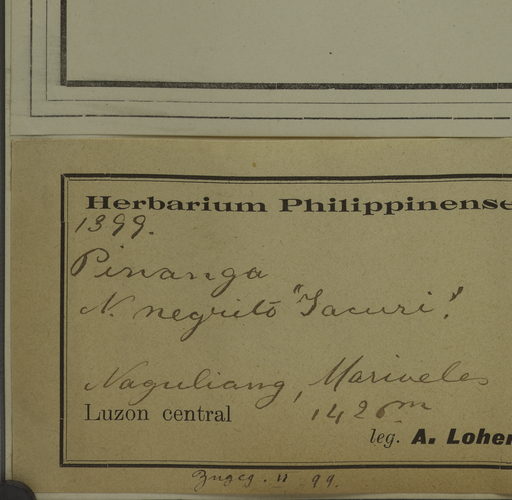 Herbarium Philippinense
1399.
Pinanga
N. negrito "Sacuri!
Naguliang, Mariveles
Luzon central 1420m
leg. A. Loher
Zugeg. n 99.